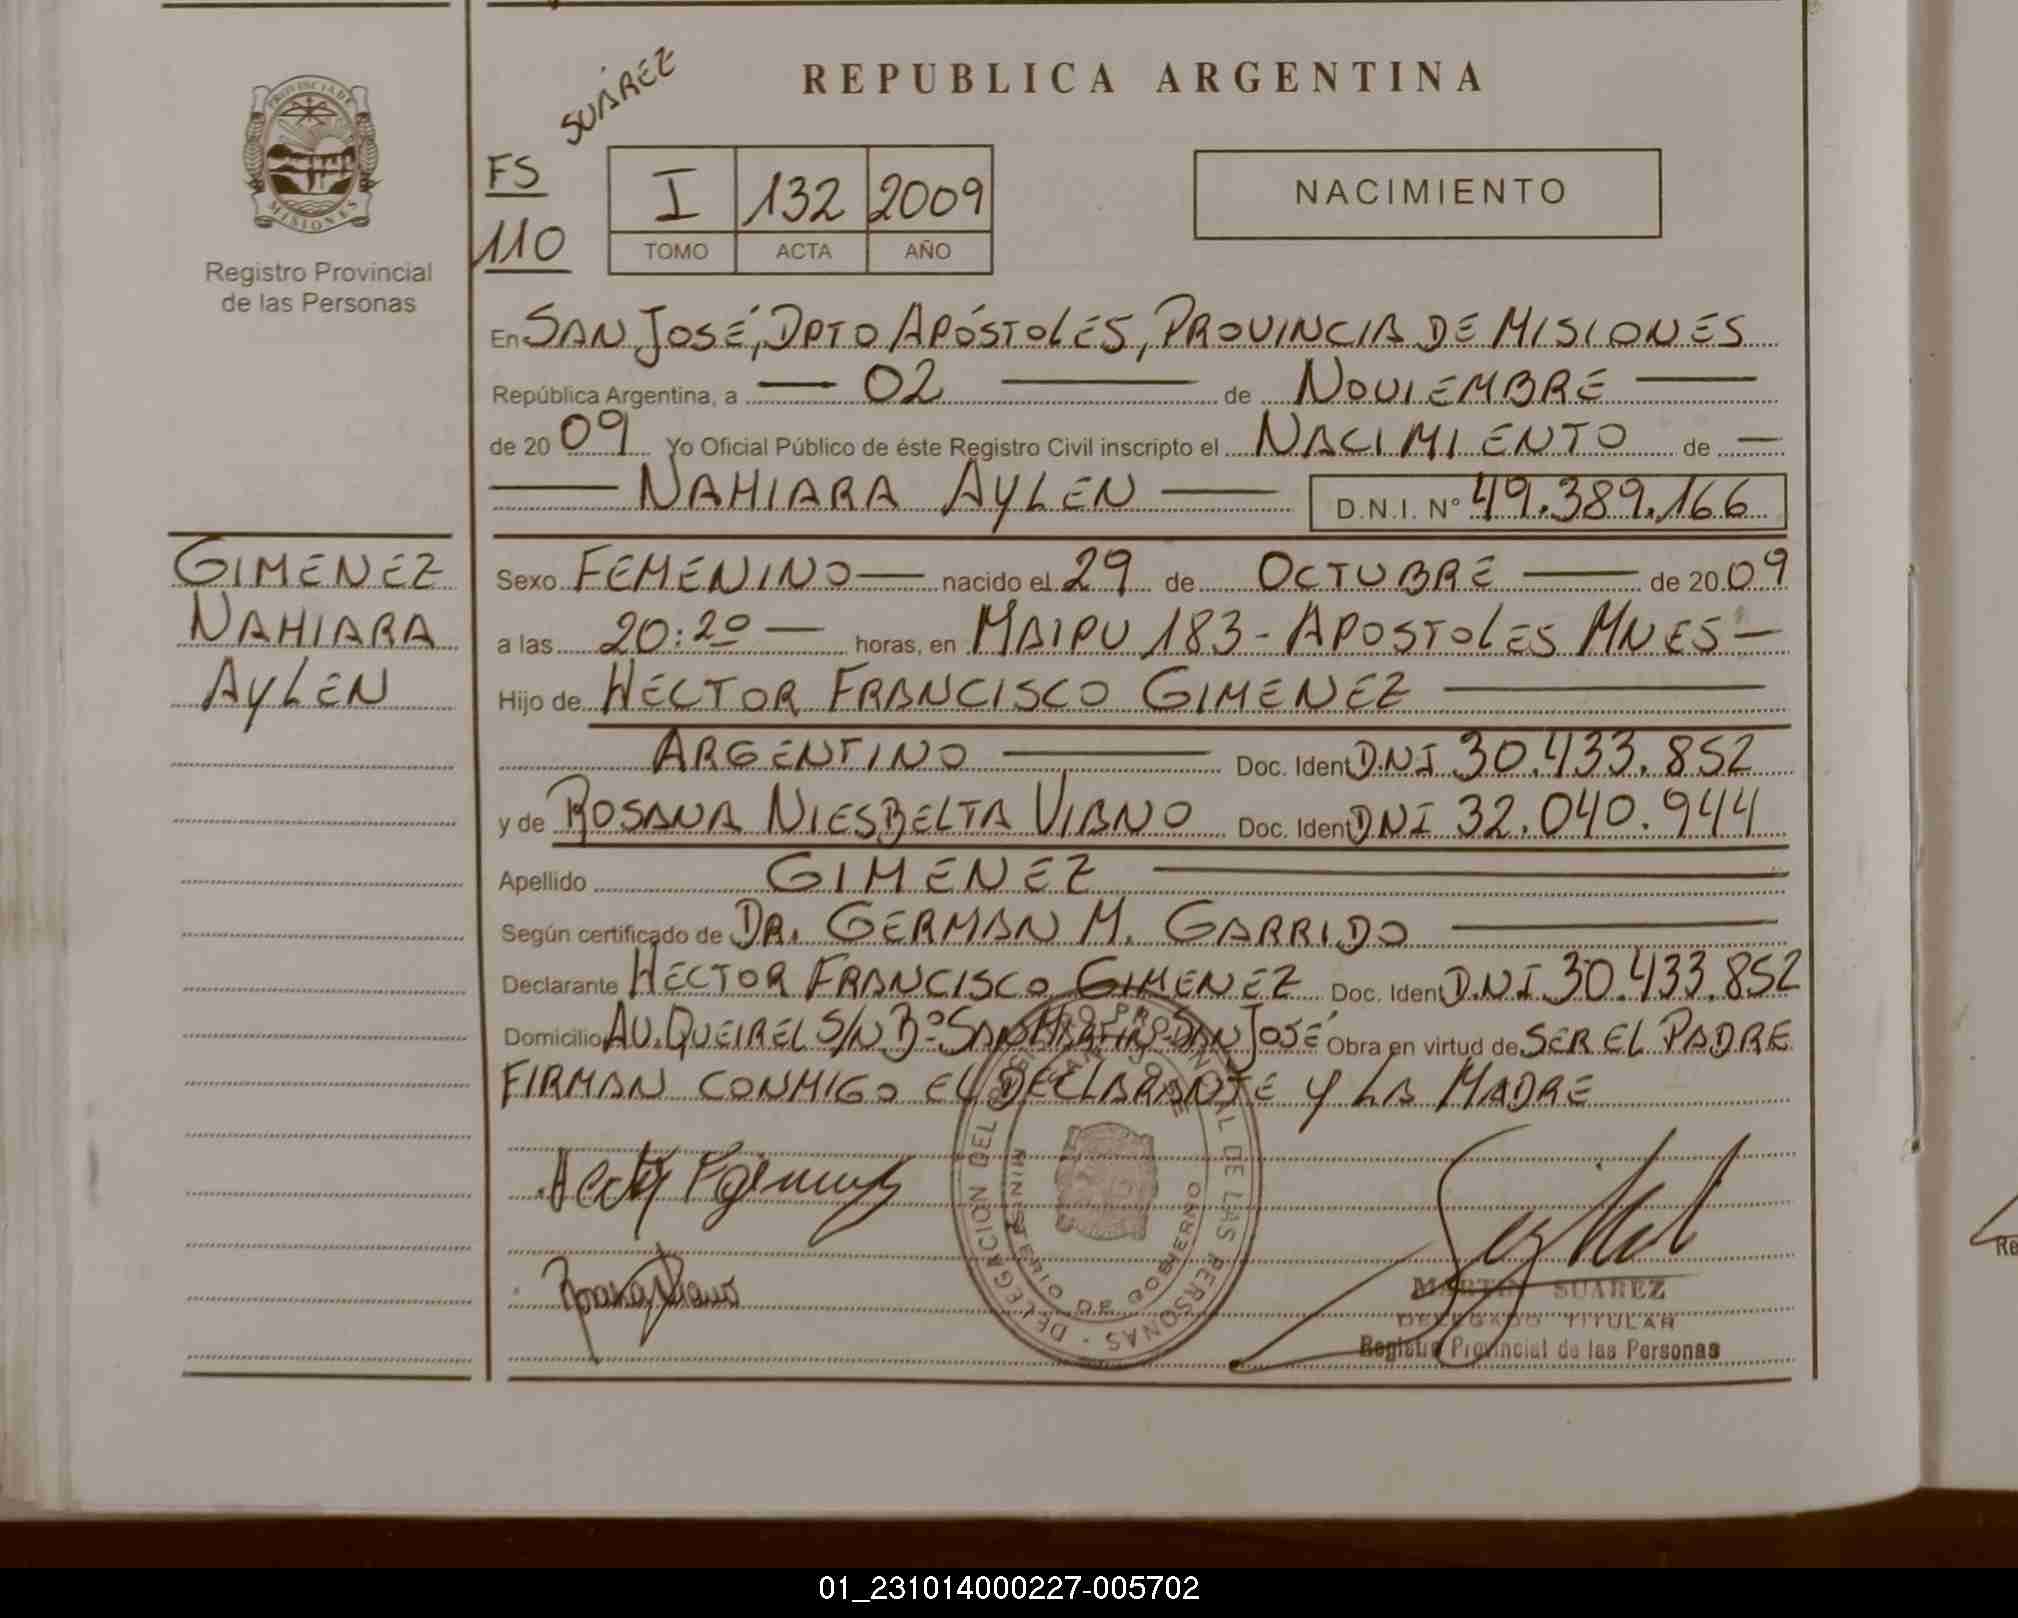 REPUBLICA ARGENTINA
SUÁREZ
PROVINCIA DE
MISIONES
Registro Provincial
de las Personas
FS
110
I 132 2009
TOMO ACTA AÑO
NACIMIENTO
En SAN JOSÉ, DPTO APÓSTOLES, PROVINCIA DE MISIONES
República Argentina, a — 02 — de NOVIEMBRE —
de 20 09 Yo Oficial Público de éste Registro Civil inscripto el NACIMIENTO de —
— NAHIARA AYLEN — D.N.I. N° 49.389.166
GIMENEZ
NAHIARA
AYLEN
Sexo FEMENINO — nacido el 29 de OCTUBRE — de 20 09
a las 20:20 — horas, en MAIPU 183 - APOSTOLES MNES —
Hijo de HECTOR FRANCISCO GIMENEZ —
ARGENTINO — Doc. Ident DNI 30.433.852
y de ROSANA NIESBELTA VIANO Doc. Ident DNI 32.040.944
Apellido GIMENEZ —
Según certificado de DR. GERMAN M. GARRIDO —
Declarante HECTOR FRANCISCO GIMENEZ Doc. Ident D.N.I 30.433.852
Domicilio AV. QUEIREL S/N B° SAN MARTIN - SAN JOSÉ Obra en virtud de SER EL PADRE
FIRMAN CONMIGO EL DECLARANTE Y LA MADRE
DELEGACION DEL REGISTRO PROVINCIAL DE LAS PERSONAS
MINISTERIO DE GOBIERNO
Rosana Viano
MARTIN SUAREZ
DELEGADO TITULAR
Registro Provincial de las Personas
Re
01_231014000227-005702